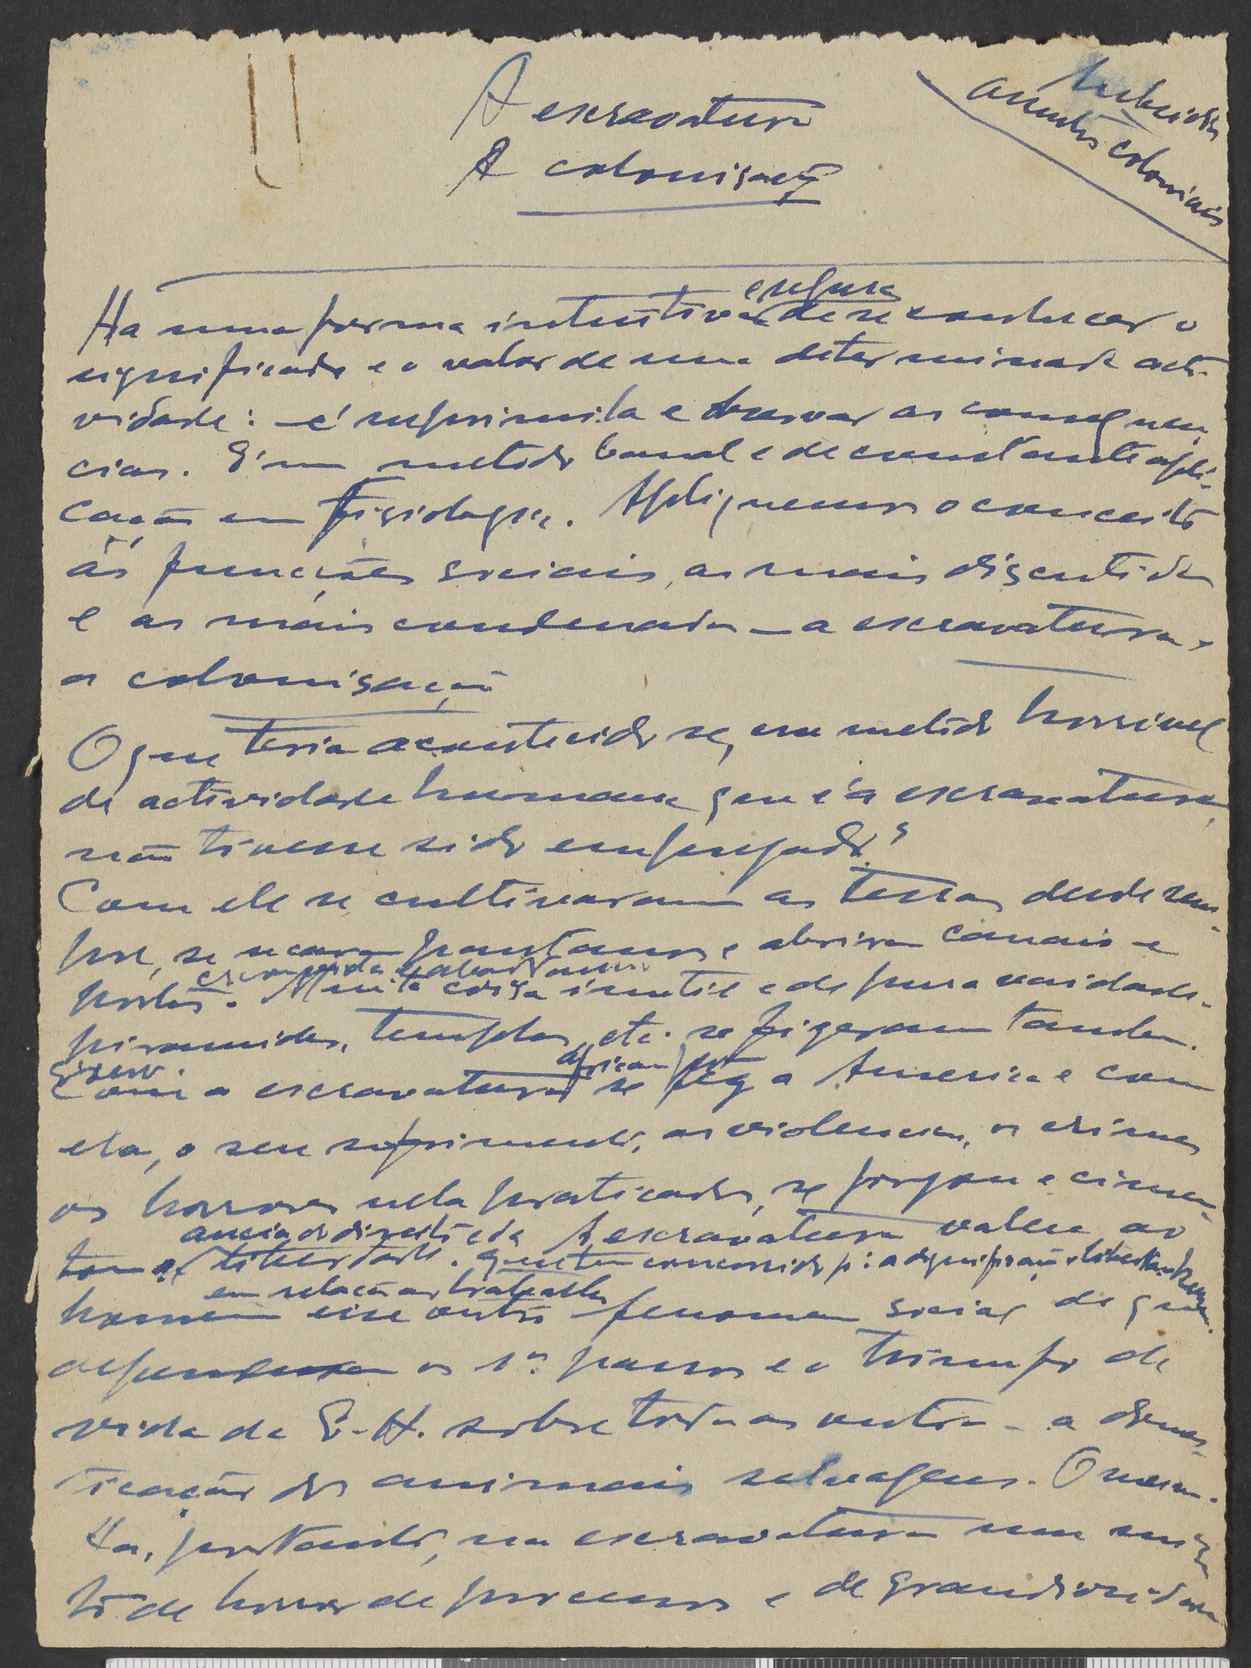 A escravatura
A colonisação
assuntos coloniais
Ha uma forma intuitiva e segura de se conhecer o
significado e o valor de uma determinada acti-
vidade: – é suprimila e observar as consequen-
cias. E' um metodo banal e de constante apli-
cação em Fisiologia. Apliquemos o conceito
ás funcções sociais, as mais discutidas
e as mais condenadas – a escravatura e
a colonisação
O que teria acontecido se, um metodo horrivel
de actividade humana que é a escravatura,
não tivesse sido empregado?
Com ele se cultivaram as terras desde sem-
pre, se secaram pantanos e abriram canais e
portos. Muita coisa inutil e de pura vaidade.
piramides, templos, etc. se fizeram tambem.
Com a escravatura africana se fez a America e com
ela, o seu suprimento, as violencias, os crimes
os horrores nela praticados, se forjou e cimen-
tou a ancia do direito e da liberdade. A escravatura valeu ao
homem em relação ao trabalho esse outro fenomeno social de que
dependeram os 1os passos e o triunfo da
vida da E. H. sobre todas as outras – a domes-
ticação dos animais selvagens. O
Ha, portanto, na escravatura um mix-
to de horror de processos e de grandiosidade